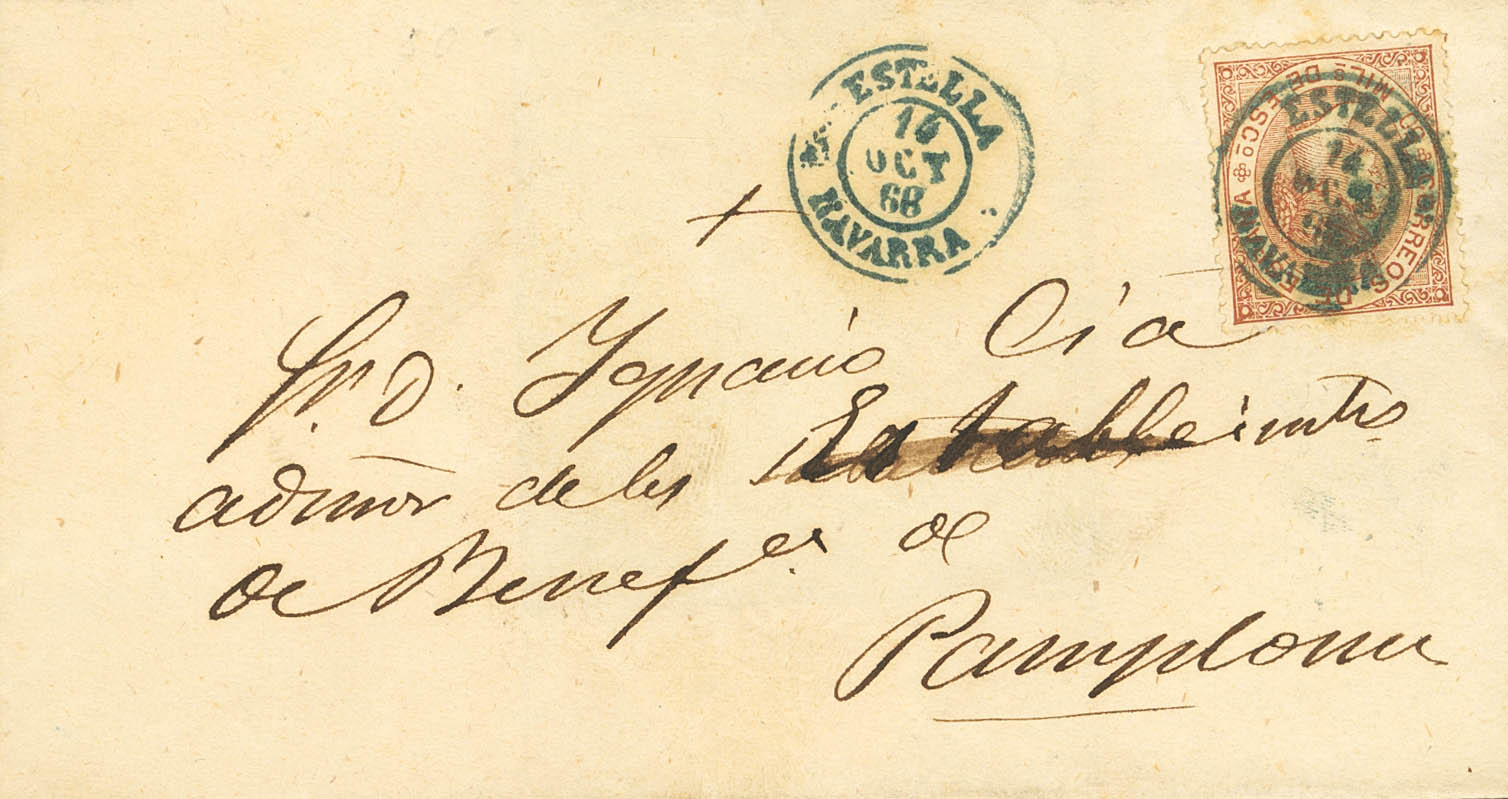 ESTELLA
14
OCT
68
NAVARRA
CORREOS DE
MILS DE ESCO
ESTELLA
14
OCT
68
NAVARRA
Sr. D. Ygnacio Cia
admor de los Estableimtos
de Benefca. de
Pamplona